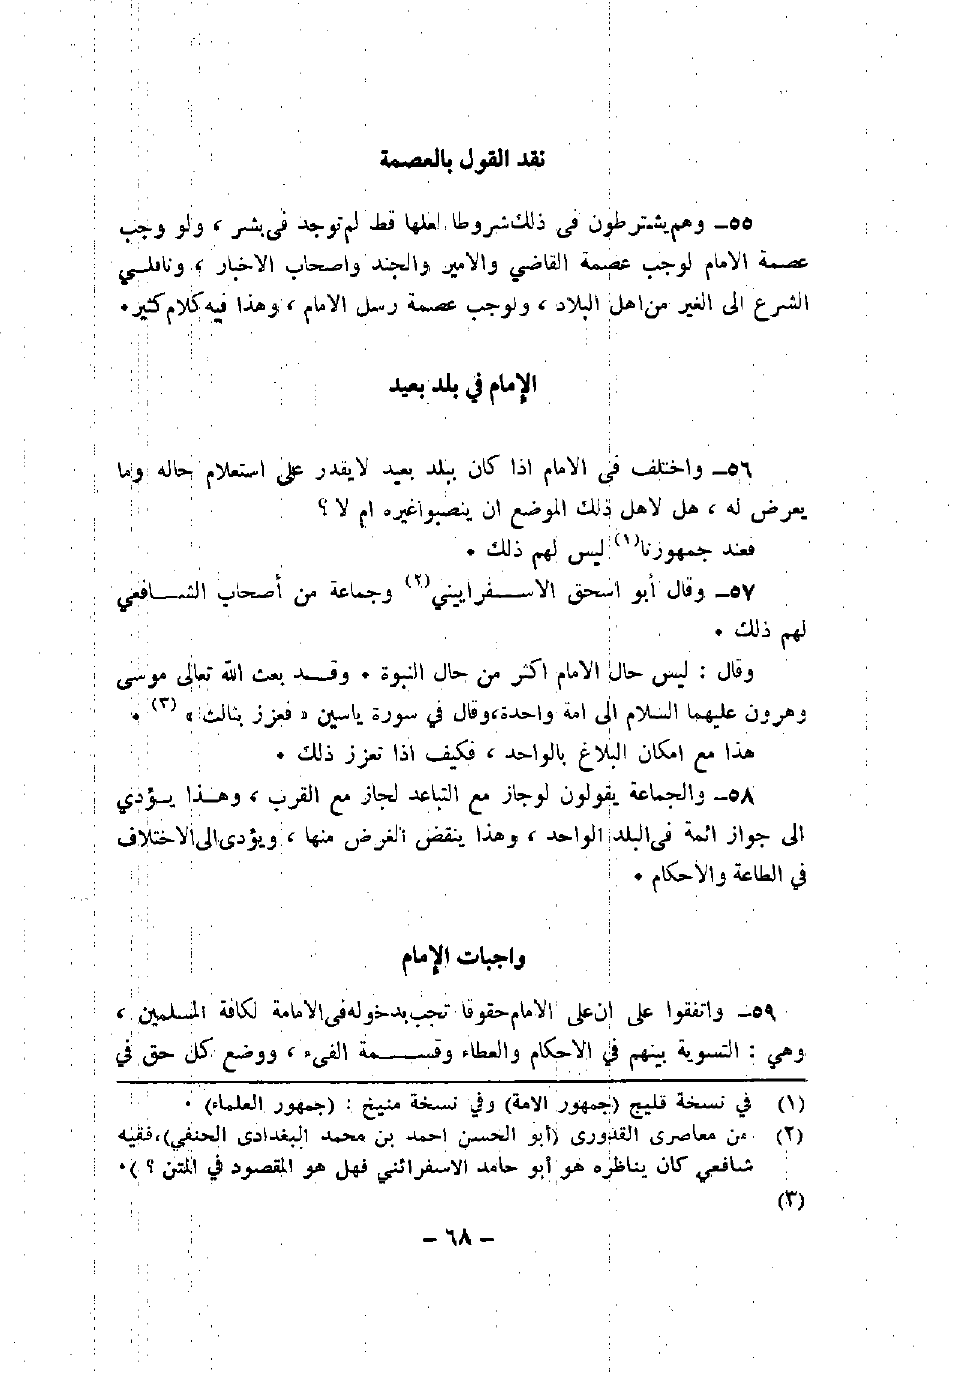 نقد القول بالعصمة
٥٥ـ وهم يشترطون في ذلك شروطا لعلها قط لم توجد في بشر ، ولو وجب
عصمة الامام لوجب عصمة القاضي والامير والجند واصحاب الاخبار ، وناقلي
الشرع الى الغير من اهل البلاد ، ولوجب عصمة رسل الامام ، وهذا فيه كلام كثير٠
الإمام في بلد بعيد
٥٦ـ واختلف في الامام اذا كان ببلد بعيد لايقدر على استعلام حاله وما
يعرض له ، هل لاهل ذلك الموضع ان ينصبوا غيره ام لا ؟
فعند جمهورنا(١) ليس لهم ذلك ٠
٥٧ـ وقال أبو اسحق الاسفراييني(٢) وجماعة من أصحاب الشافعي
لهم ذلك ٠
وقال : ليس حال الامام اكثر من حال النبوة ٠ وقد بعث الله تعالى موسى
وهرون عليهما السلام الى امة واحدة،وقال في سورة ياسين « فعزز بثالث » (٣) ٠
هذا مع امكان البلاغ بالواحد ، فكيف اذا تعزز ذلك ٠
٥٨ـ والجماعة يقولون لوجاز مع التباعد لجاز مع القرب ، وهذا يؤدي
الى جواز ائمة في البلد الواحد ، وهذا ينقض الغرض منها ، ويؤدى الى الاختلاف
في الطاعة والاحكام ٠
واجبات الإمام
٥٩ـ واتفقوا على ان على الامام حقوقا تجب بدخوله في الامامة لكافة المسلمين ،
وهي : التسوية بينهم في الاحكام والعطاء وقسمة الفيء ، ووضع كل حق في
(١) في نسخة قليج (جمهور الامة) وفي نسخة منيخ : (جمهور العلماء) ٠
(٢) من معاصرى القدورى (أبو الحسن احمد بن محمد البغدادى الحنفي)،فقيه
شافعي كان يناظره هو أبو حامد الاسفرائني فهل هو المقصود في المتن ؟ )٠
(٣)
ـ ٦٨ ـ